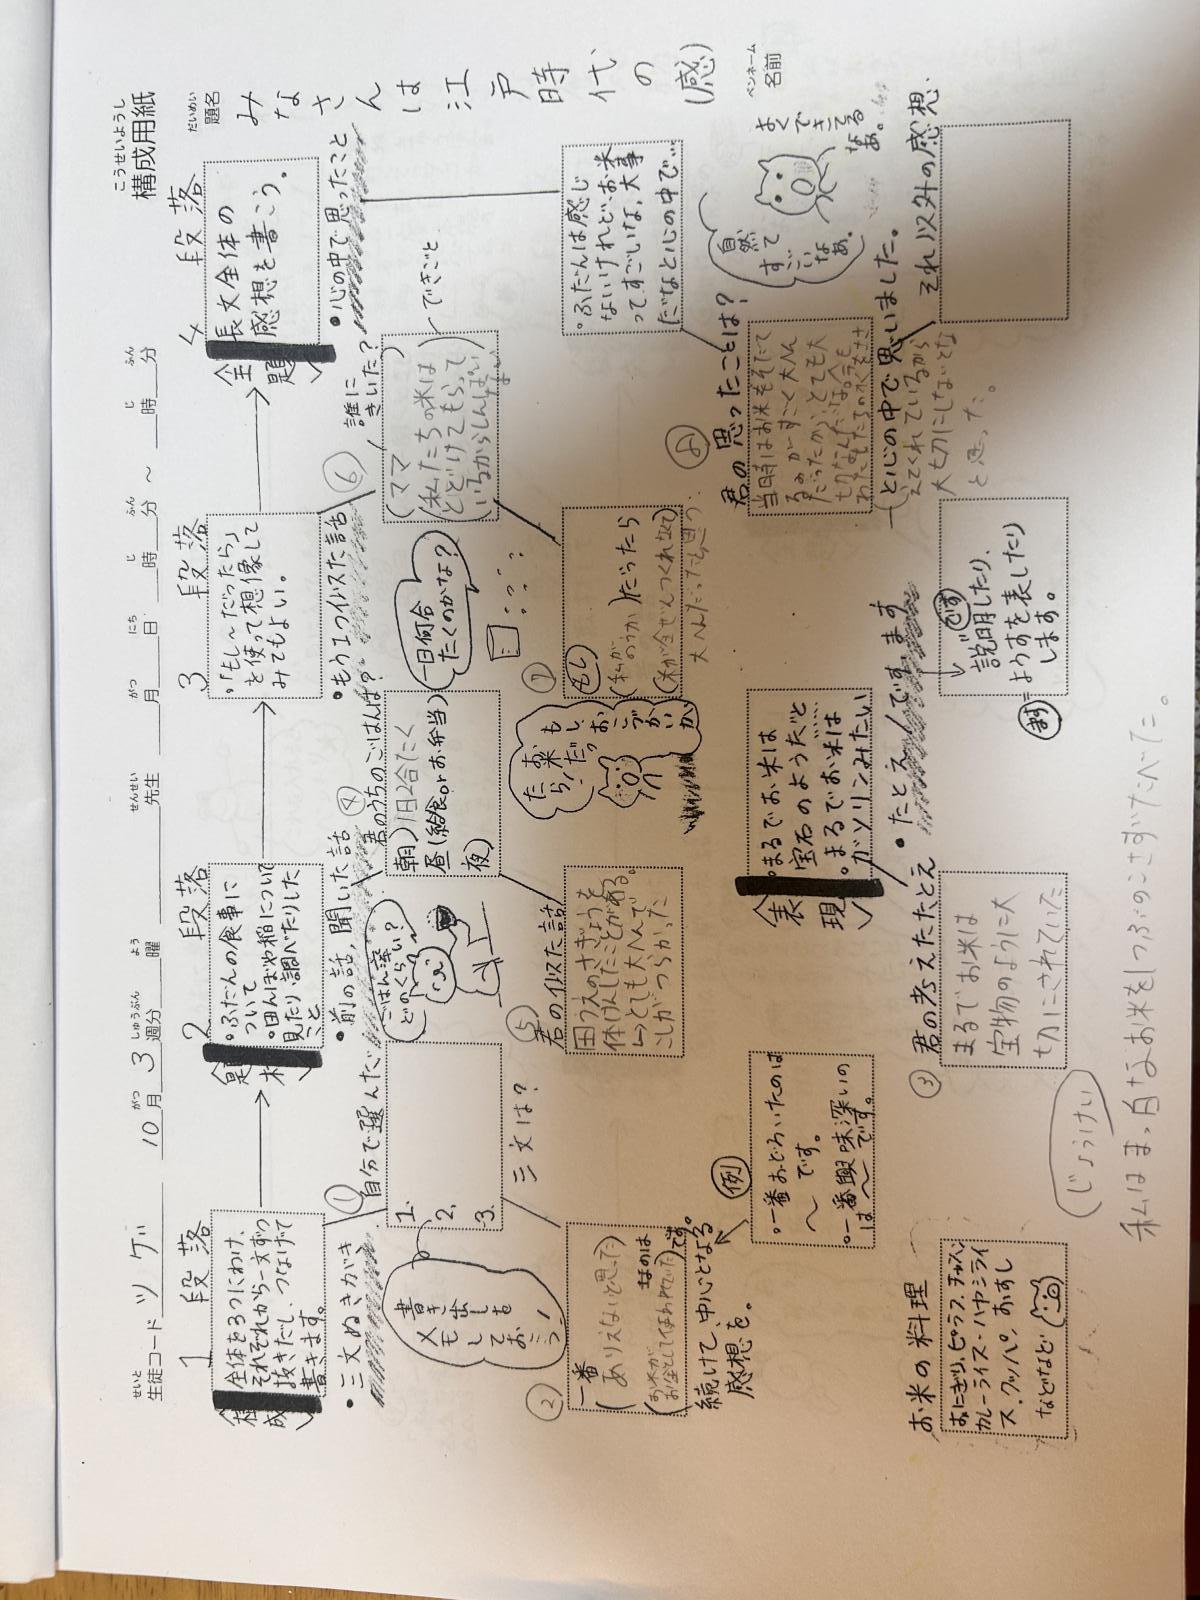 こうせいようし
構成用紙
せいと
生徒コード ツゲジ
10月 3週分 曜 先生 月 日 時 分 ～ 時 分
がつ しゅうぶん よう せんせい がつ にち じ ふん じ ふん
だいめい
題名
みなさんは江戸時代の(感)
ペンネーム
名前
1段落
〈構成〉
全体を3つにわけ、
それぞれから一文ずつ
抜きだし、つなげて
書きます。
・三文ぬきがき
① 自分で選んだ
三文は?
1.
2.
3.
書き出しを
メモして
おこう!
②
一番
(ありえないと思った)
なのは
(お米が
お金としてつかわれていた)です。
続けて、中心となる
感想を。
例
・一番おどろいたのは
～です。
・一番興味深いの
は～です。
お米の料理
おにぎり、ピラフ、チャーハン
カレーライス・ハヤシライ
ス、クッパ、おすし
などなど
2段落
〈題材〉
・ふだんの食事に
ついて
・田んぼや稲について
見たり調べたりした
こと
・前の話、聞いた話
④
君のうちのごはんは?
朝)1日2合たく
昼(給食orお弁当)
夜)
ごはん茶
どのくらい?
⑤
君の似た話
田うえのさぎょうを
体けんしたことがある。
とても大へんで
こしがつらかった
〈表現〉
・まるでお米は
宝石のようだと
・まるでお米は
ガソリンみたい
・たとえ
③
君の考えたたとえ
まるでお米は
宝物のように大
切にされていた
3段落
・「もし～だったら」
と使って想像して
みてもよい。
・もう1つ似た話
一日何合
たくのかな?
⑥
誰に
きいた?
(ママ)
(私たちの米は
とどけてもらって
いるからしんぱい
ない)
できごと
⑦
もし
(私が
のうか)だったら
(米が全ぜんつくれなくて)
大へんだったと思う
もし、おこづかいが
お米だったら!
です、ます
です
説明したり、
ます=
ようすを表したり
します。
4段落
〈全題〉
長文全体の
感想を書こう。
・心の中で思ったこと
・ふだんは感じ
ないけれど、お米
ってすごいな、大事
だなと心の中で…
自然
すご
いなあ。
よく
できてる
なあ。
⑧
君の思ったことは?
当時はお米をそだて
るのがすごく大へん
だったから、とても大
切なんだな。今も
わたしたちの
えてくれているから
大切にしないとな
と思った。
と心の中で思いました。
それ以外の感想.
(じょうけい)
私はまっ白なお米を1つぶのこさずたべた。